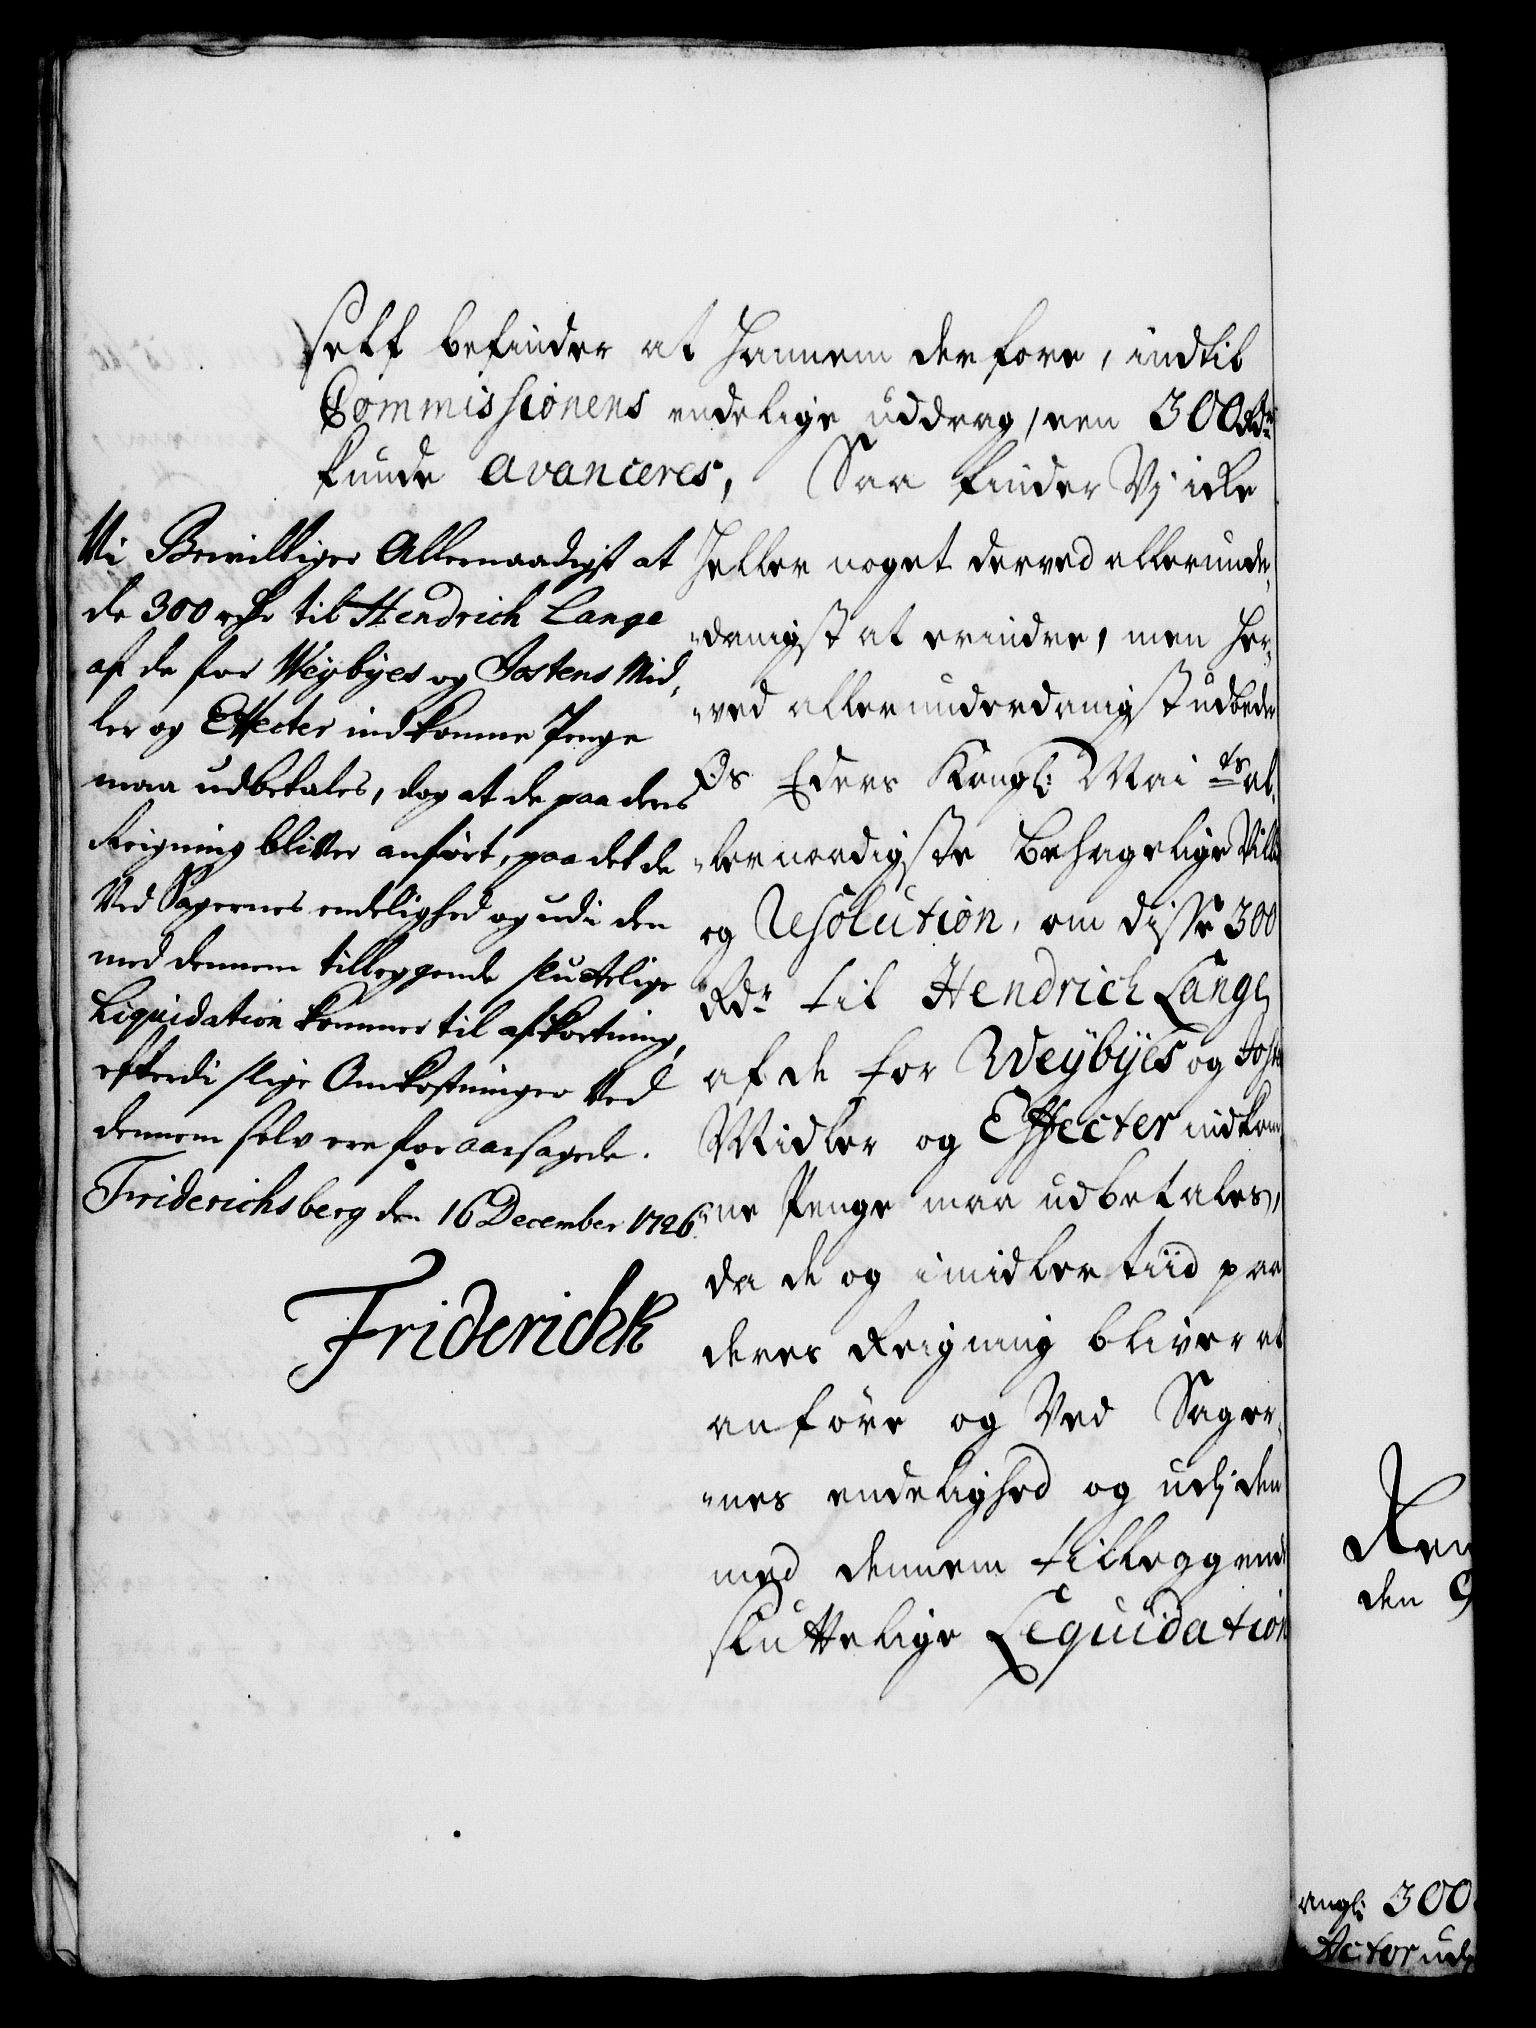 self befinder at hannem derfore, indtil
Commissionens endelige uddrag, een 300 Rdr
kunde avanceres, Saa finder Vj icke
heller noget derved allerunder„
„danigst at erindre, men her„
„ved allerunderdanigst udbeder
Os Eders Kongl: Mai ts al„
„lernaadigste behagelige Villie
og Resolution, om disse 300
Rdr til Hendrich Lange
af de for Weybyes og Jostens
Midler og Effecter indkom„
„ne Penge maa udbetales,
da de og imidlertiid paa
deres Reigning bliver at
anføre og Ved Sager„
„nes endelighed og udj den
med dennem tilleggende
sluttelige Liquidation
Vi Bevilliger Allernaadigst at
de 300 rdr til Hendrich Lange
af de for Weybyes og Jostens Mid„
ler og Effecter indkomne Penge
maa udbetales, dog at de paa deres
Reigning bliver anført, paa det de
Ved Sagernes endelighed og udi den
med dennem tilleggende sluttelige
Liquidation kommer til afkortning,
efterdi slige Omkostninger Ved
dennem selv ere foraarsagede.
Friderichsberg den 16 December 1726.
Friderich R
den 9
angl: 300
Actor